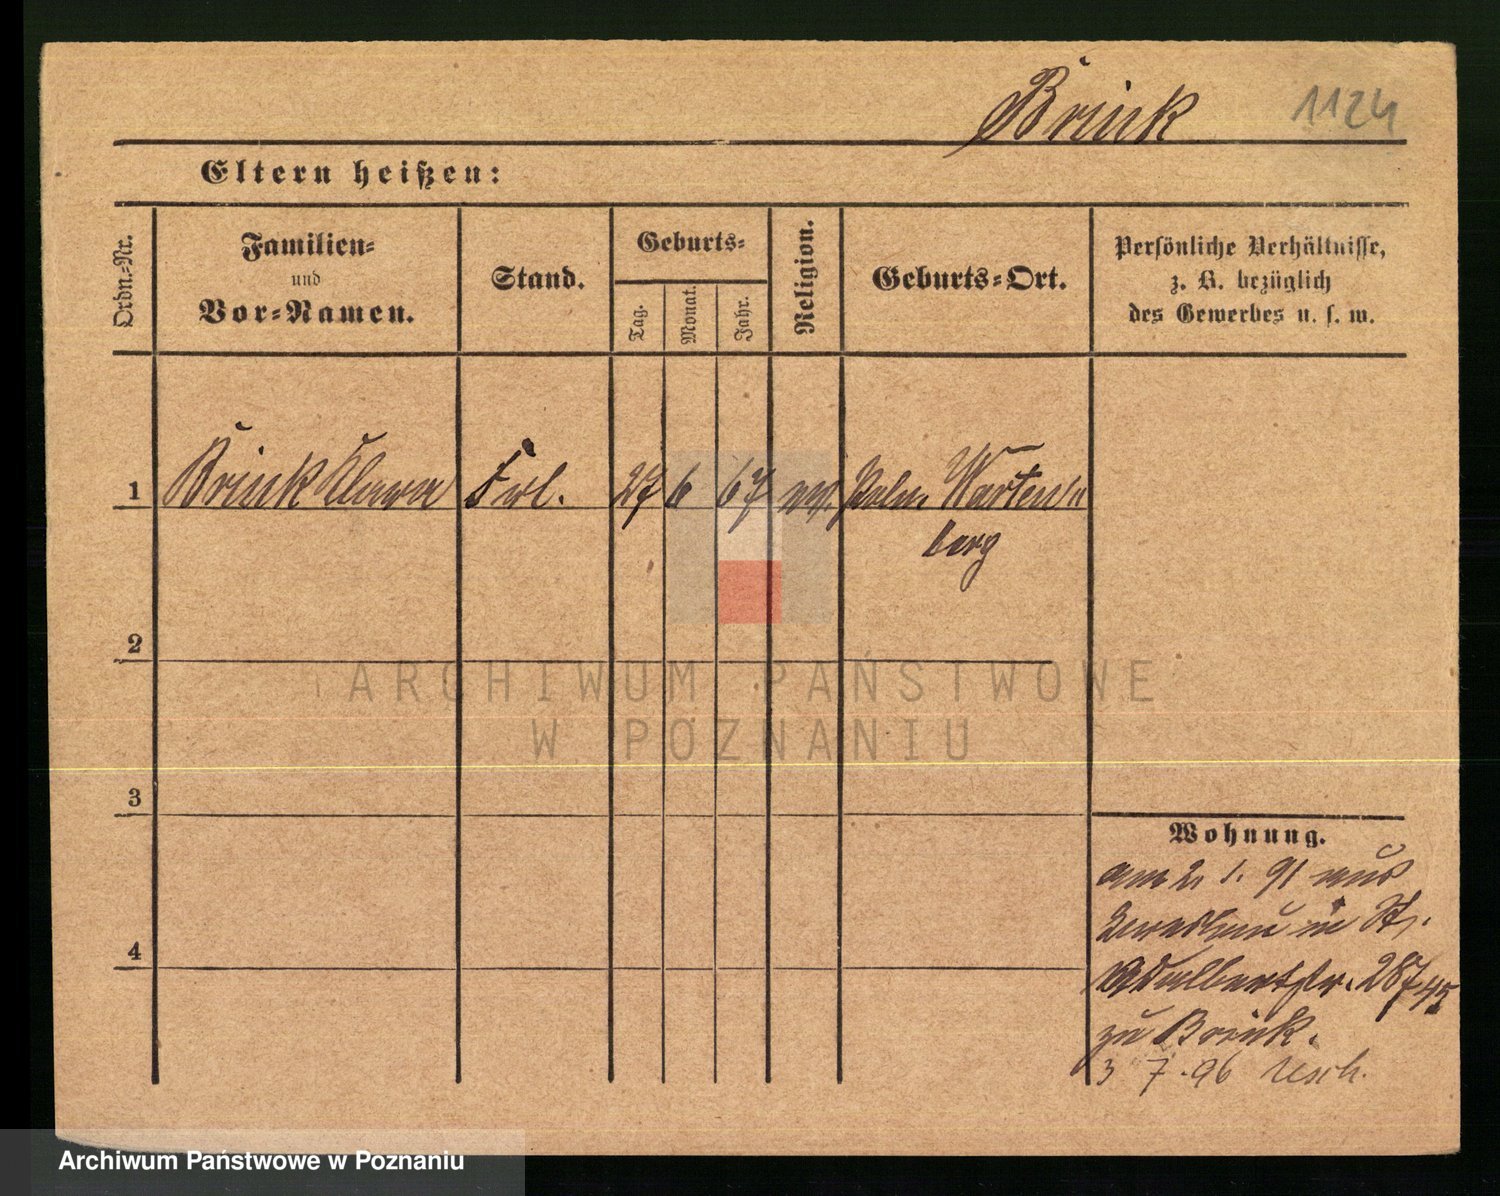 Brink 1124
Eltern heißen:
Ordn.-Nr.
Familien-
und
Vor-Namen.
Stand.
Geburts-
Tag.
Monat.
Jahr.
Religion.
Geburts-Ort.
Persönliche Verhältnisse,
z. B. bezüglich
des Gewerbes u. s. w.
1 Brink Klara Frl. 27 6 67 Poln. Warten
berg
2
ARCHIWUM PAŃSTWOWE
W POZNANIU
3
Wohnung.
am 2. 1. 91 aus
in St.
4
Adalbertstr. 28
zu Brink.
3 7. 96
Archiwum Państwowe w Poznaniu